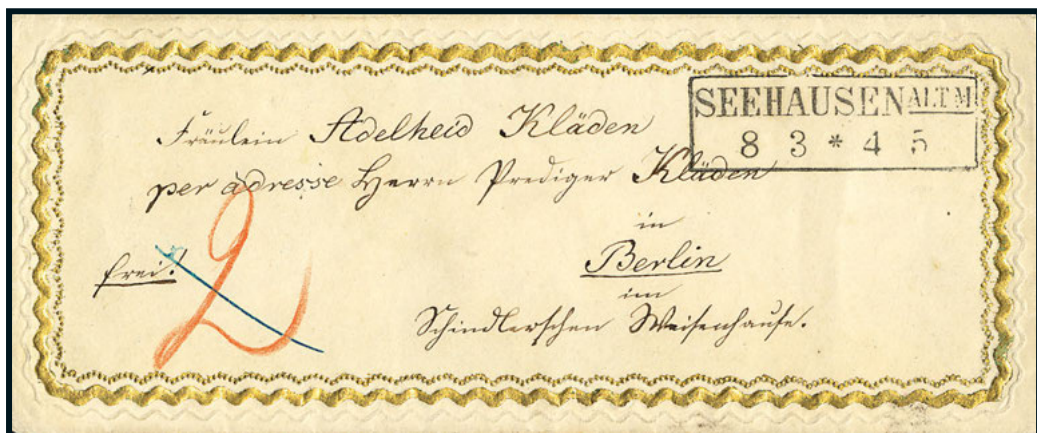 SEEHAUSEN ALT M
8 3 * 4 5
Fräulein Adelheid Kläden
per adresse Herrn Prediger Kläden
in
Berlin
im
Schindlerschen Weisenhause.
frei!
2